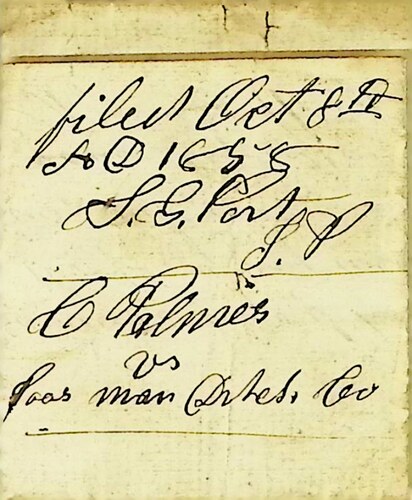 filed Oct 8th
A D 1855
S. G. Port
J. P
C Palmer
vs
man Ditch Co